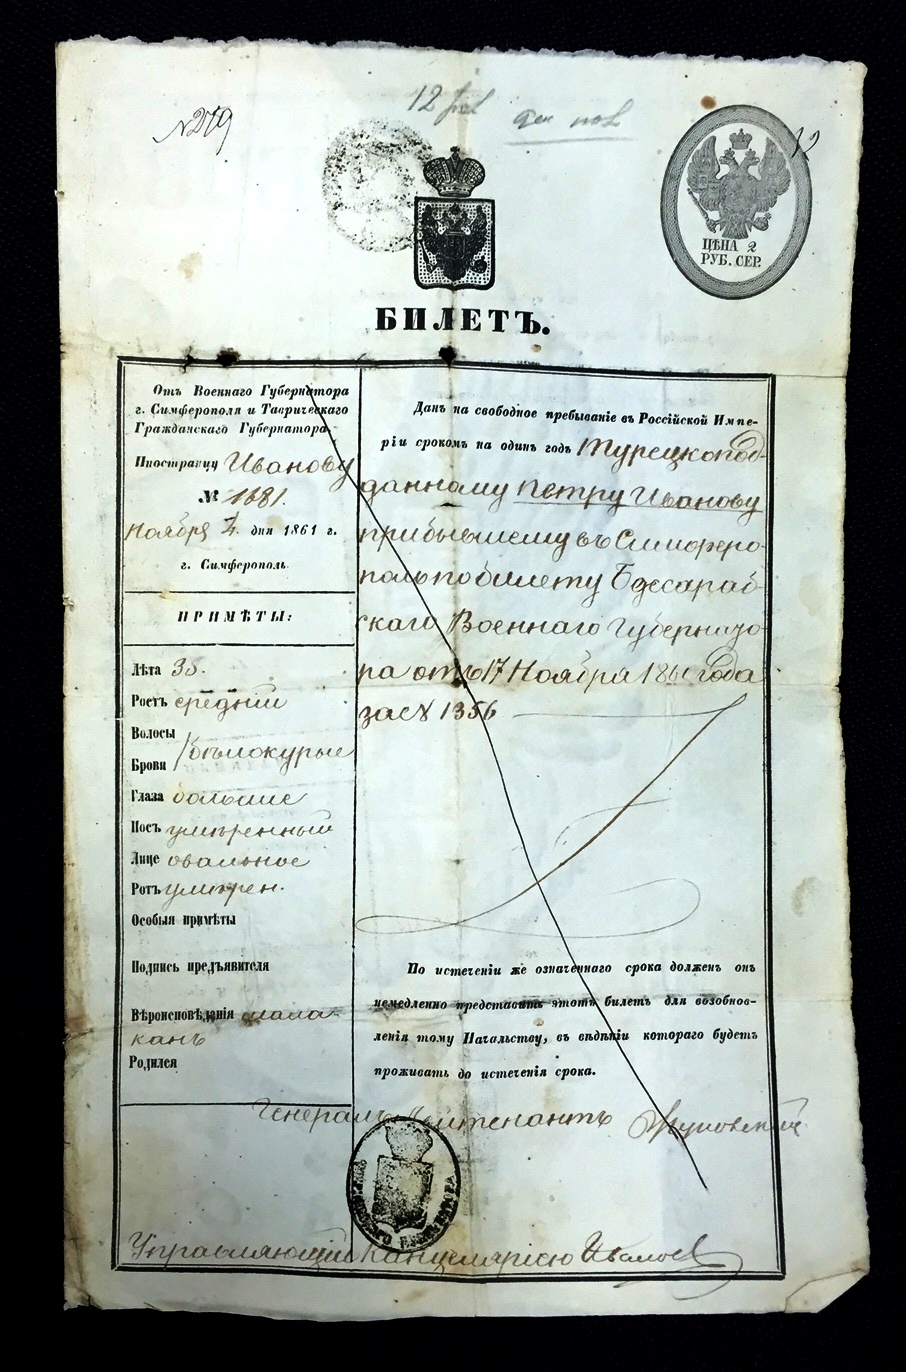 №279
12
ЦѢНА 2
РУБ. СЕР.
БИЛЕТЪ.
Отъ Военнаго Губернатора
г. Симферополя и Таврическаго
Гражданскаго Губернатора,
Иностранцу Иванову
№ 1681.
Ноября дня 1861 г.
г. Симферополь
ПРИМѢТЫ:
Лѣта 35.
Ростъ средній
Волосы
Брови бѣлокурые
Глаза большіе
Носъ умѣренный
Лице овальное
Ротъ умѣрен.
Особыя примѣты
Подпись предъявителя
Вѣроисповѣданія мала-
канъ
Родился
Данъ на свободное пребываніе въ Россійской Импе-
ріи срокомъ на одинъ годъ Турецкопод-
данному Петру Иванову
прибывшему въ Симферо-
поль по билету Бессараб-
скаго Военнаго Губернато-
ра отъ 17 Ноября 1860 года
за № 1356
По истеченіи же означеннаго срока долженъ онъ
немедленно представить этотъ билетъ для возобнов-
ленія тому Начальству, въ вѣдѣніи котораго будетъ
проживать до истеченія срока.
Генералъ Лейтенантъ Жуковскій
Управляющій Канцеляріею